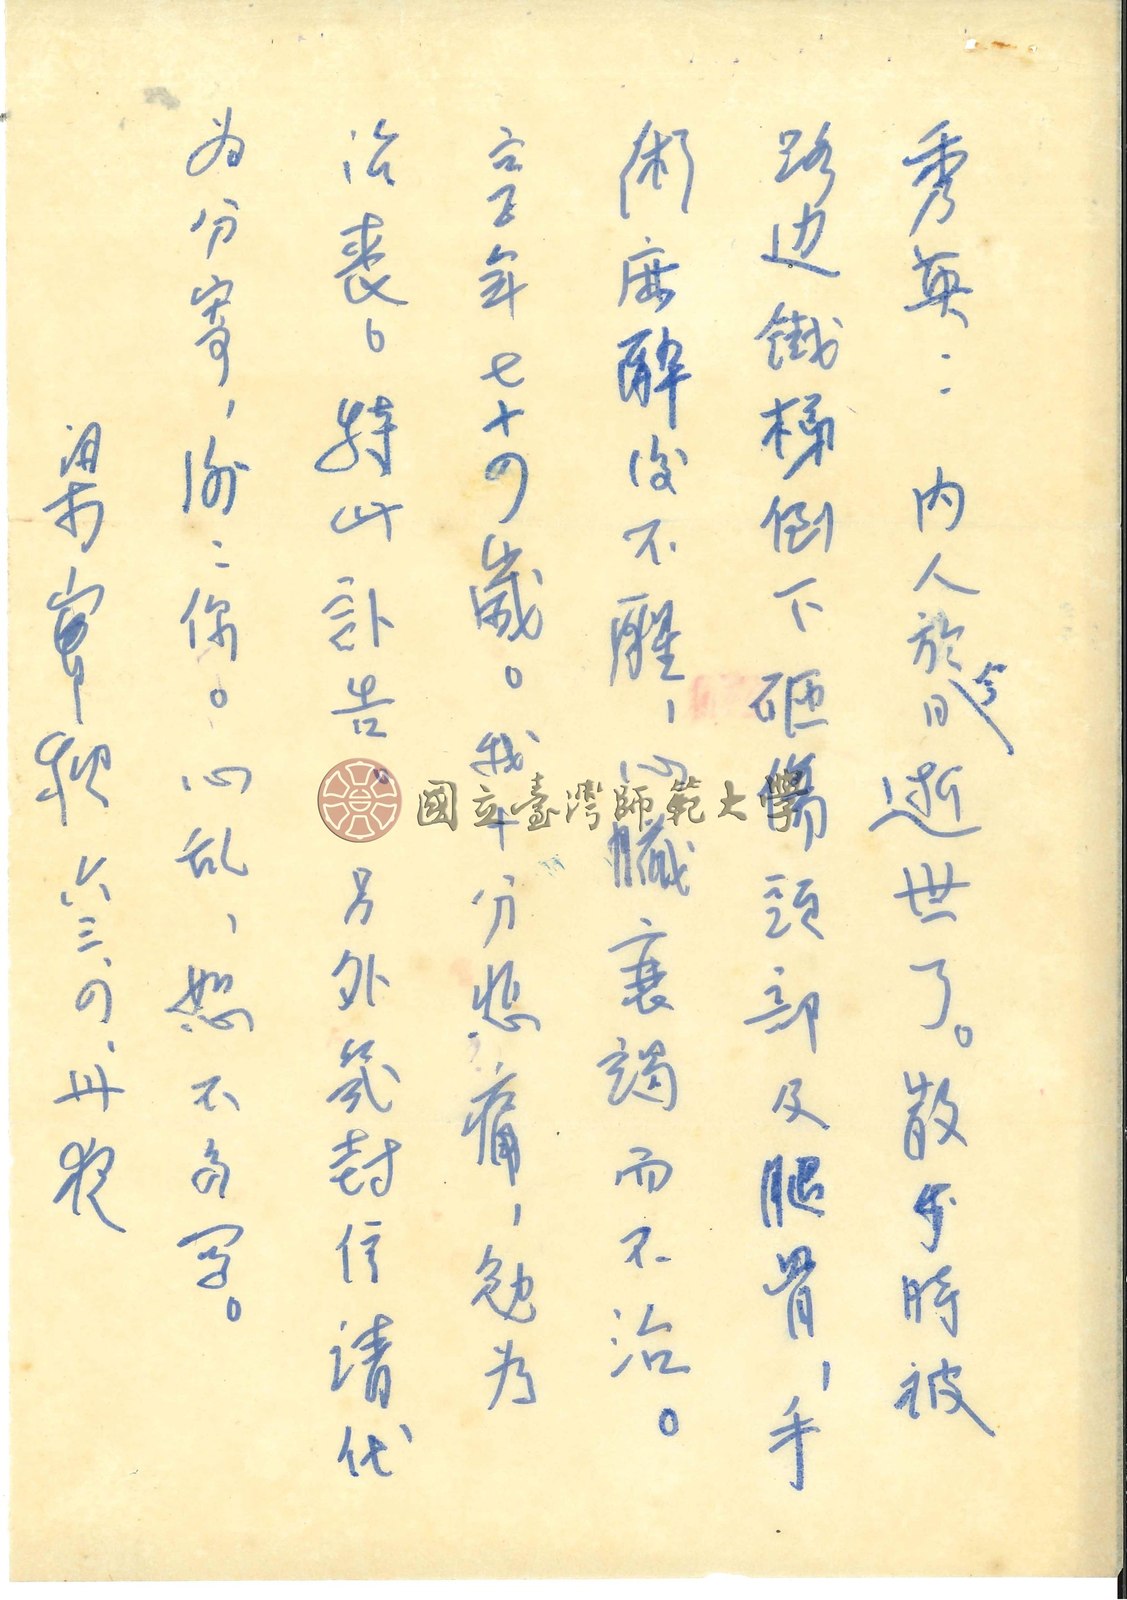 秀英：內人於今日逝世了。散步時被
路边鐵梯倒下砸傷頭部及腿骨，手
術麻醉後不醒，心臟衰竭而不治。
享年七十四歲。我十分悲痛，勉为
治喪。特此訃告。另外幾封信請代
为分寄，謝：你。心乱，恕不多写。
梁實秋 六三、四、卅夜
國立臺灣師範大學